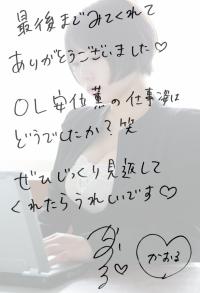 最後までみてくれて
ありがとうございました♡
OL安位薫の仕事姿は
どうでしたか？笑
ぜひじっくり見返して
くれたらうれしいです♡
かおる♡
かおる